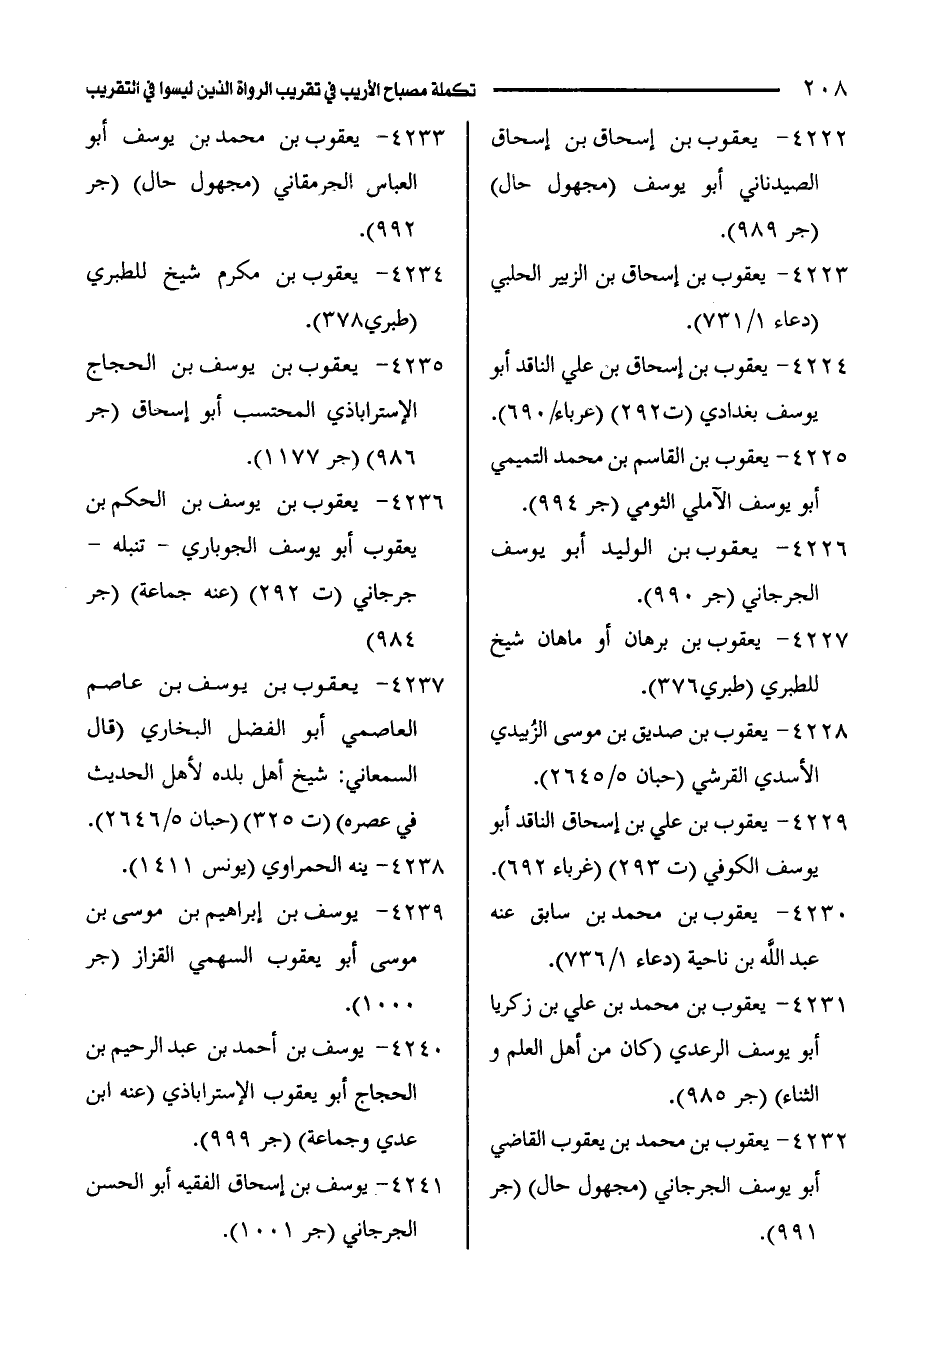 ٢٠٨ تكملة مصباح الأريب في تقريب الرواة الذين ليسوا في التقريب
٤٢٢٢- يعقوب بن إسحاق بن إسحاق
الصيدناني أبو يوسف (مجهول حال)
(جر ٩٨٩).
٤٢٢٣- يعقوب بن إسحاق بن الزبير الحلبي
(دعاء ٧٣١/١).
٤٢٢٤- يعقوب بن إسحاق بن علي الناقد أبو
يوسف بغدادي (ت٢٩٢) (عرباء/٦٩٠).
٤٢٢٥- يعقوب بن القاسم بن محمد التميمي
أبو يوسف الآملي الثومي (جر ٩٩٤).
٤٢٢٦- يعقوب بن الوليد أبو يوسف
الجرجاني (جر ٩٩٠).
٤٢٢٧- يعقوب بن برهان أو ماهان شيخ
للطبري (طبري٣٧٦).
٤٢٢٨- يعقوب بن صديق بن موسى الزُبيدي
الأسدي القرشي (حبان ٢٦٤٥/٥).
٤٢٢٩- يعقوب بن علي بن إسحاق الناقد أبو
يوسف الكوفي (ت ٢٩٣) (غرباء ٦٩٢).
٤٢٣٠- يعقوب بن محمد بن سابق عنه
عبد اللَّه بن ناحية (دعاء ٧٣٦/١).
٤٢٣١- يعقوب بن محمد بن علي بن زكريا
أبو يوسف الرعدي (كان من أهل العلم و
الثناء) (جر ٩٨٥).
٤٢٣٢- يعقوب بن محمد بن يعقوب القاضي
أبو يوسف الجرجاني (مجهول حال) (جر
٩٩١).
٤٢٣٣- يعقوب بن محمد بن يوسف أبو
العباس الجرمقاني (مجهول حال) (جر
٩٩٢).
٤٢٣٤- يعقوب بن مكرم شيخ للطبري
(طبري٣٧٨).
٤٢٣٥- يعقوب بن يوسف بن الحجاج
الإستراباذي المحتسب أبو إسحاق (جر
٩٨٦) (جر ١١٧٧).
٤٢٣٦- يعقوب بن يوسف بن الحكم بن
يعقوب أبو يوسف الجوباري - تنبله -
جرجاني (ت ٢٩٢) (عنه جماعة) (جر
٩٨٤)
٤٢٣٧- يعقوب بن يوسف بن عاصم
العاصمي أبو الفضل البخاري (قال
السمعاني: شيخ أهل بلده لأهل الحديث
في عصره) (ت ٣٢٥) (حبان ٢٦٤٦/٥).
٤٢٣٨- ينه الحمراوي (يونس ١٤١١).
٤٢٣٩- يوسف بن إبراهيم بن موسى بن
موسى أبو يعقوب السهمي القزاز (جر
١٠٠٠).
٤٢٤٠- يوسف بن أحمد بن عبد الرحيم بن
الحجاج أبو يعقوب الإستراباذي (عنه ابن
عدي وجماعة) (جر ٩٩٩).
٤٢٤١- يوسف بن إسحاق الفقيه أبو الحسن
الجرجاني (جر ١٠٠١).